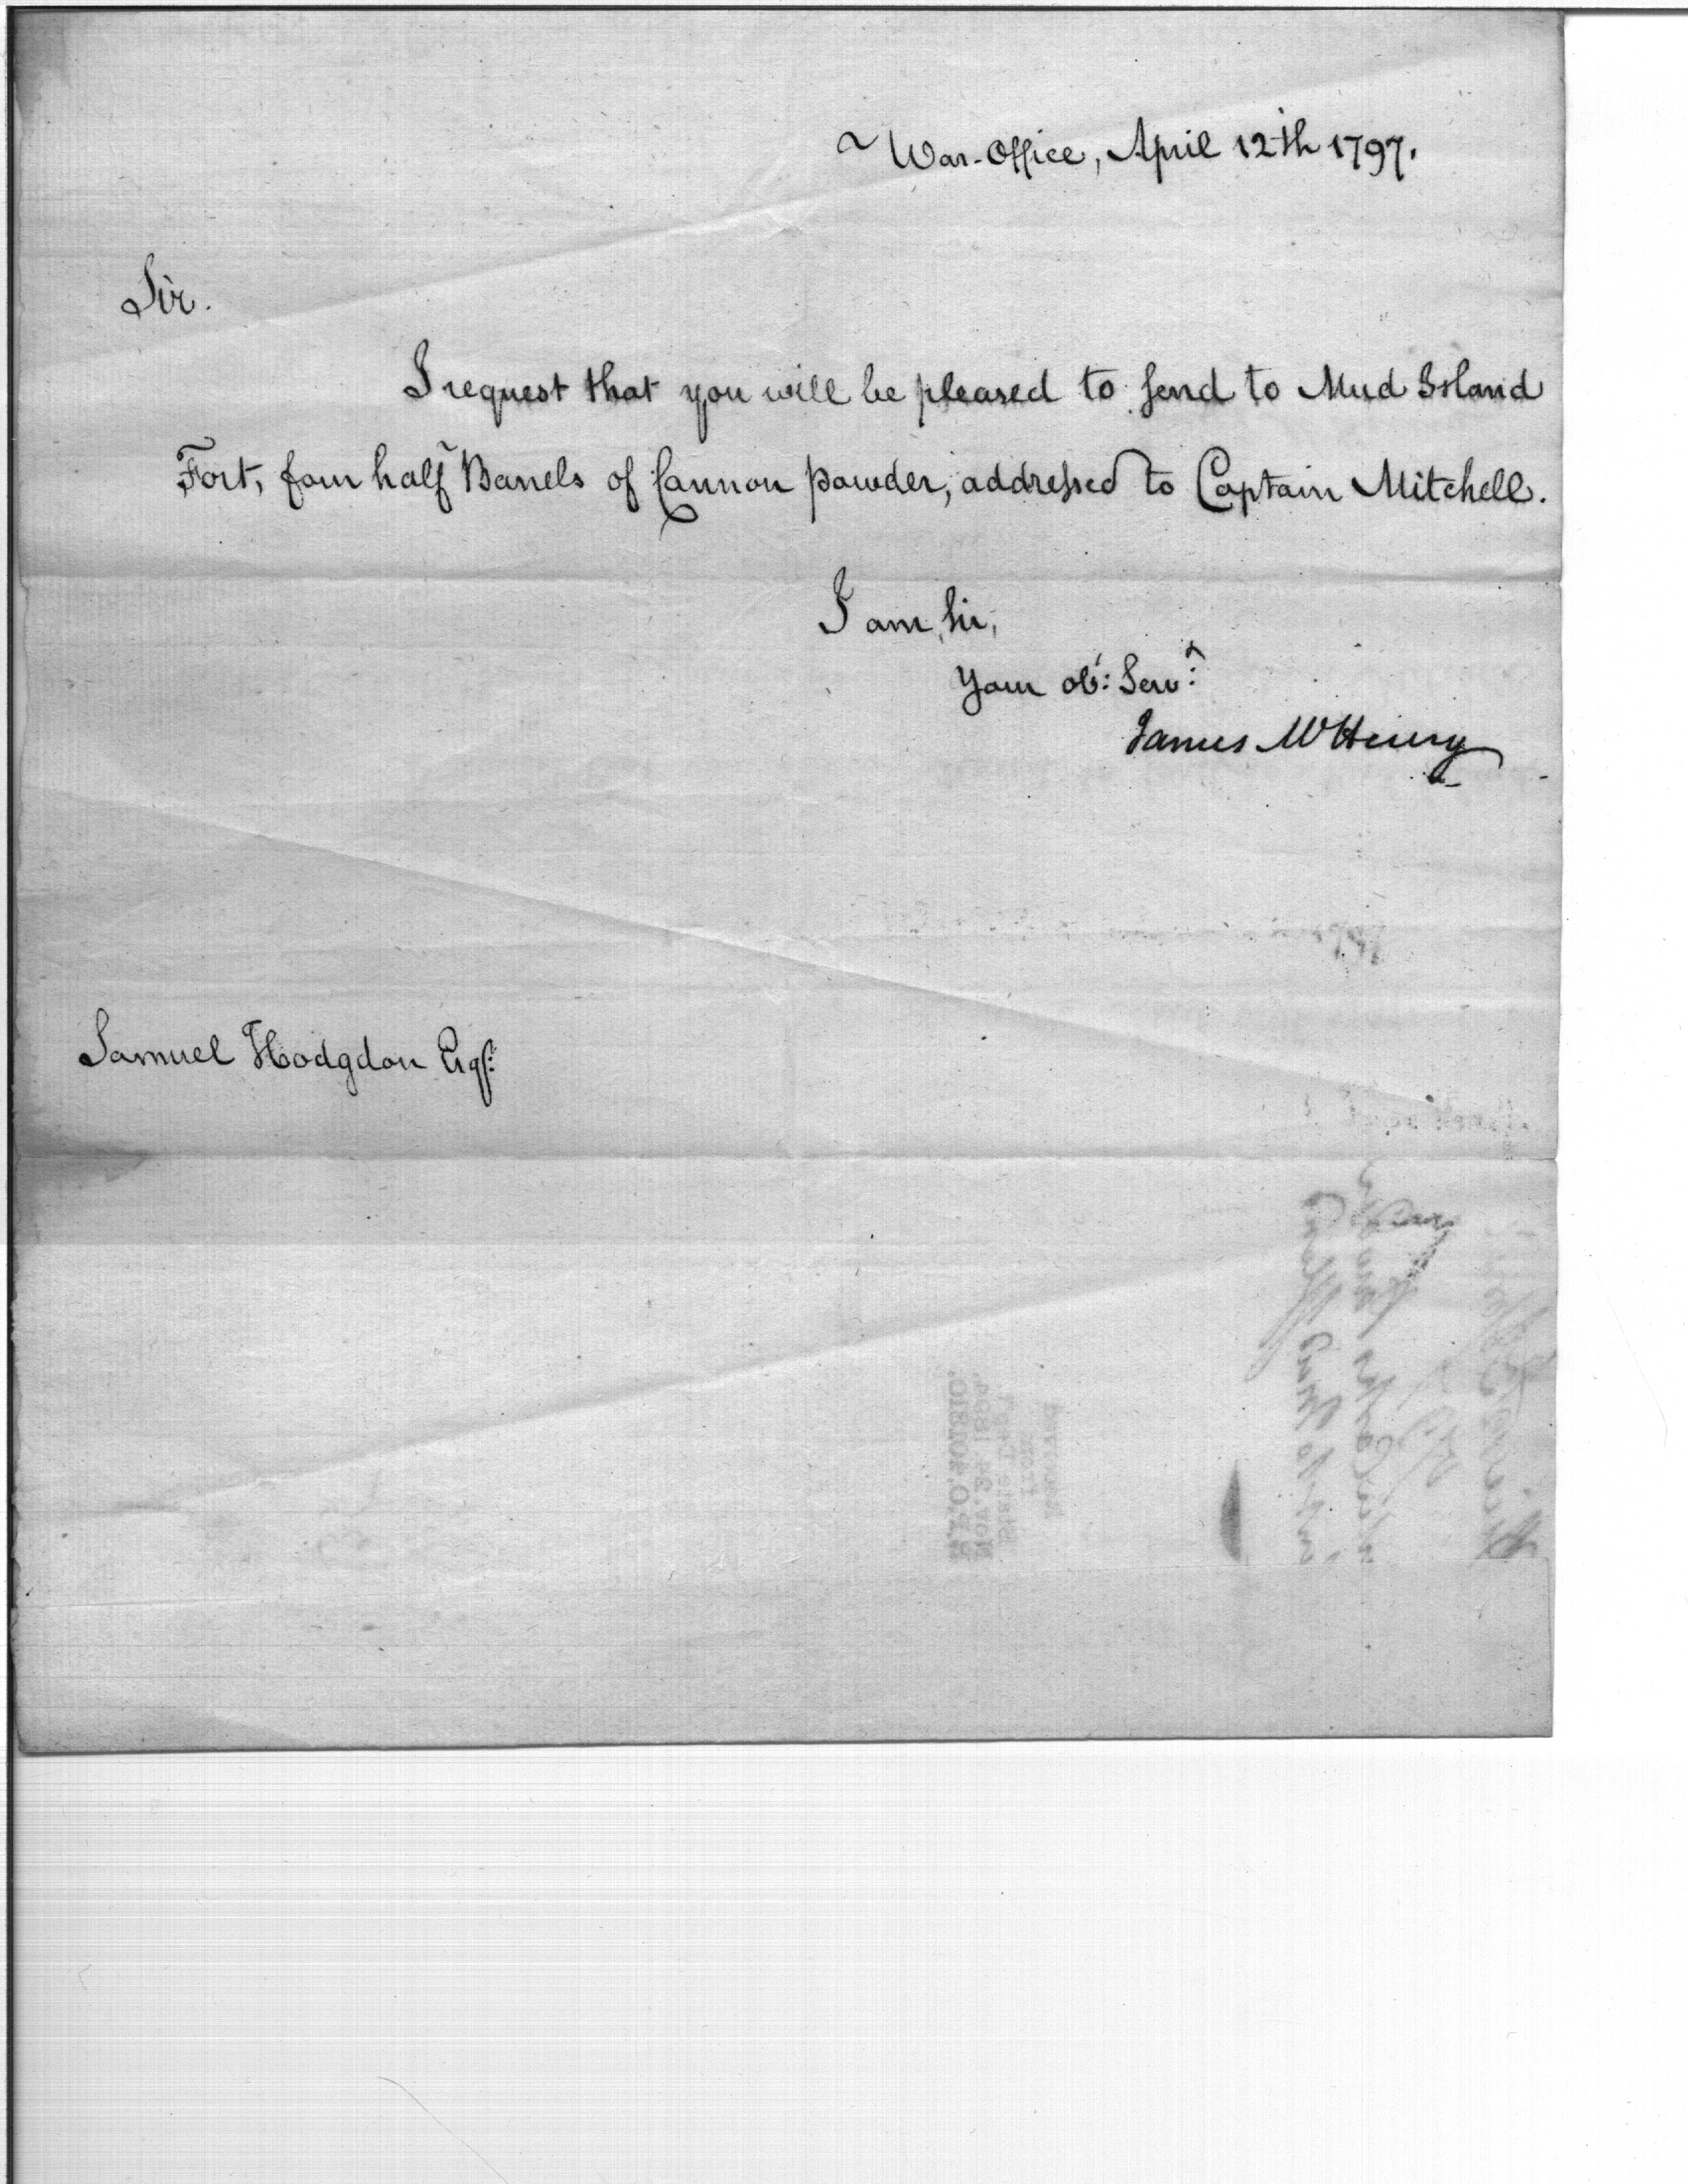 War-Office, April 12th 1797.
Sir.
I request that you will be pleased to send to Mud Island
Fort, four half Barrels of Cannon powder, addressed to Captain Mitchell.
I am, Sir,
Your obt: Servt:
James McHenry
Samuel Hodgdon Esqr:
Received
from
State Dep't
Nov. 24 1894.